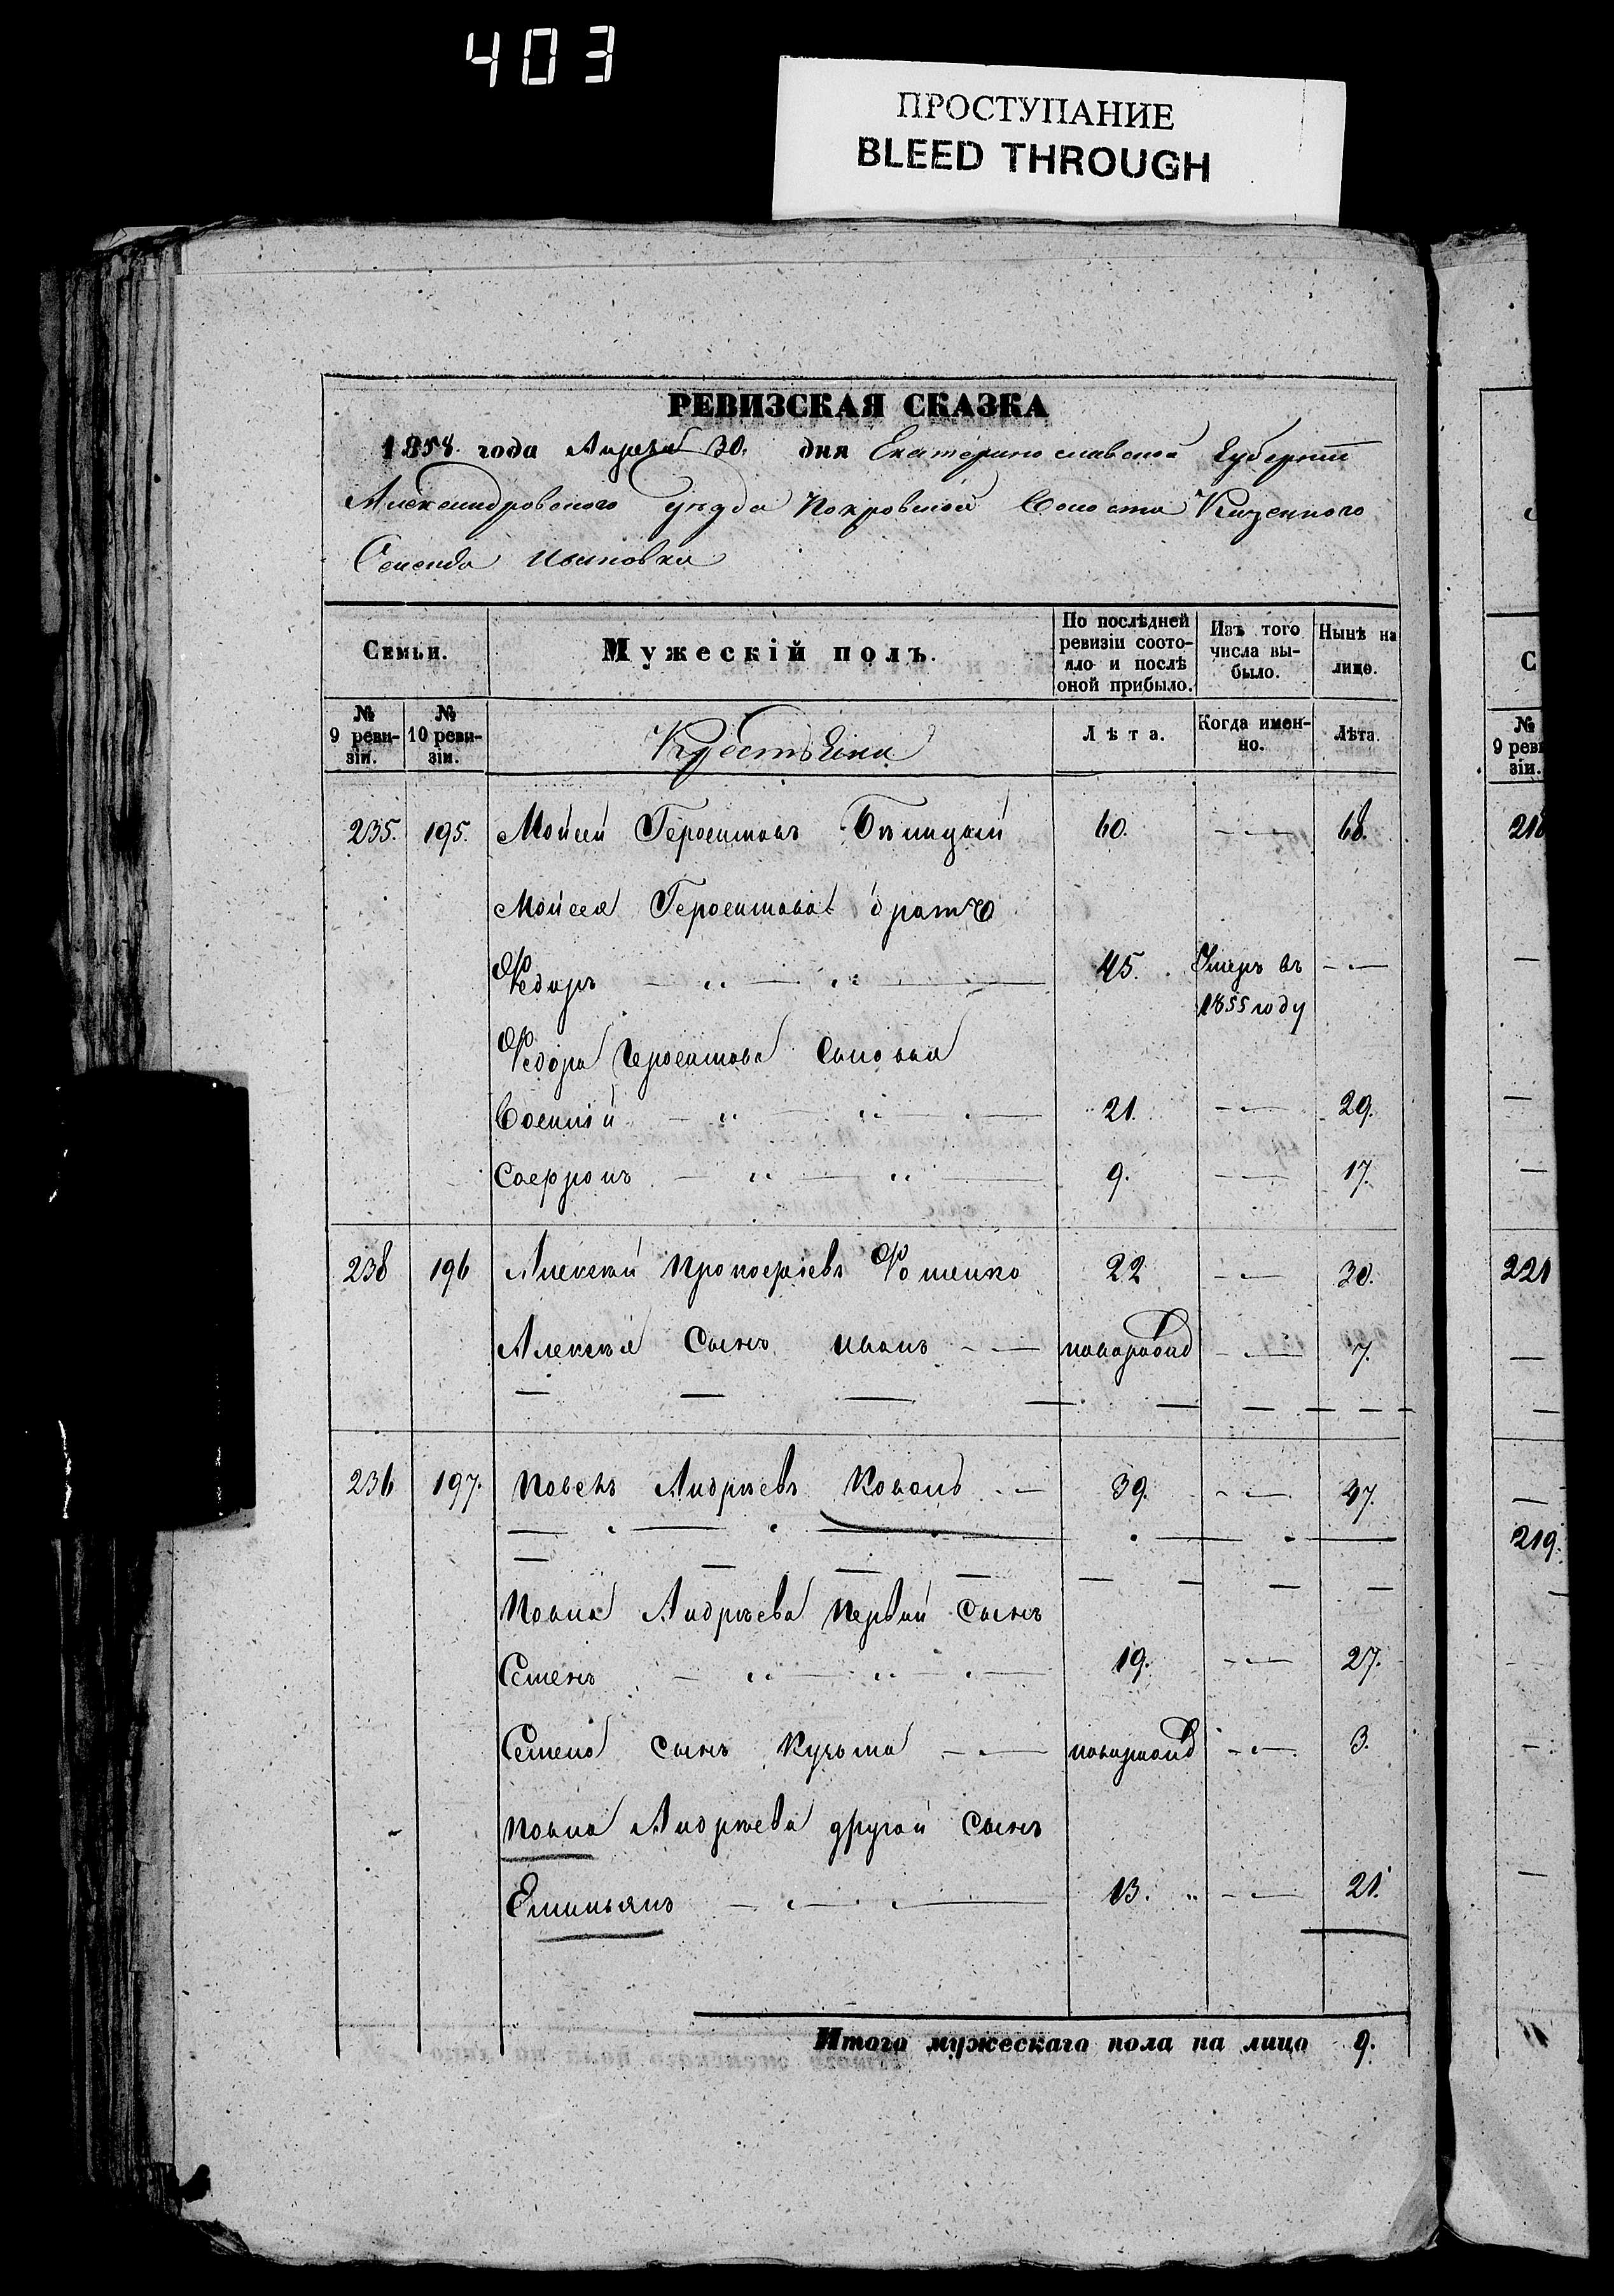 403
ПРОСТУПАНИЕ
BLEED THROUGH
РЕВИЗСКАЯ СКАЗКА
1858 года Апреля 30. дня Екатеринославской Губернии
Александровского уезда Покровской Волости Казенного
Селенія Ивановки
Семьи.
Мужескій полъ.
По послѣдней ревизіи состояло и послѣ оной прибыло.
Изъ того числа выбыло.
Нынѣ на лице.
№ 9 ревизіи.
№ 10 ревизіи.
Крестьяни
Лѣта.
Когда именно.
Лѣта.
235. 195. Мойсей Герасимовъ 60. 68.
Мойсея Герасимова братъ
Федоръ 45. Умеръ въ
1855 году
Федора Герасимова Сыновья
Василій 21. 29.
Сафронъ 9. 17.
238 196 Алексѣй Прокофіевъ Фоменко 22 30.
Алексѣя Сынъ Иванъ новорожд 7.
236 197. Павелъ Андрѣевъ Коваль 39. 47.
Павла Андрѣева Первый Сынъ
Семенъ 19. 27.
Семена Сынъ Кузьма новорожд 3.
Павла Андрѣева другой Сынъ
Емильянъ 13. 21.
Итого мужескаго пола на лицо 9.
С
№
9 реви
зіи.
218
221
219.